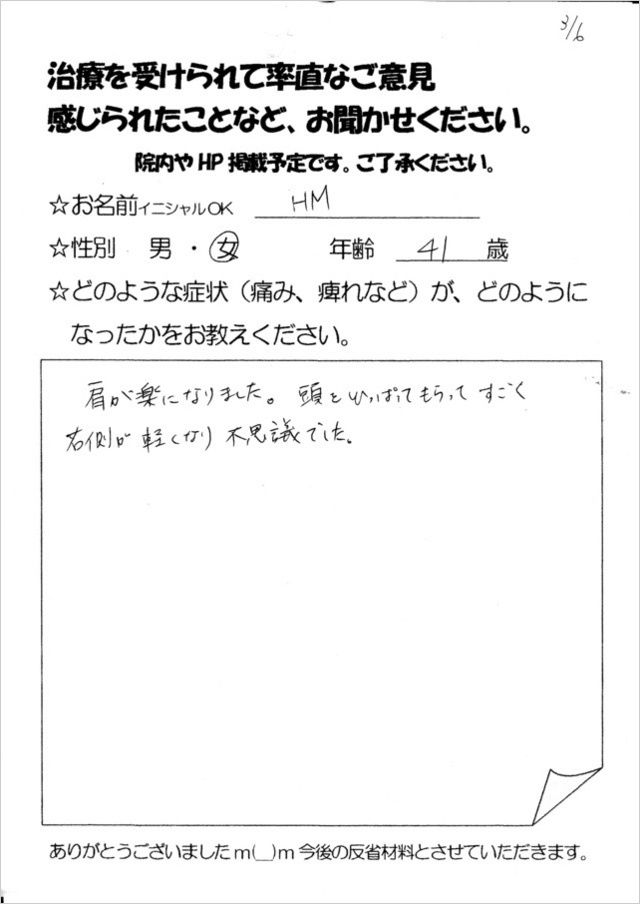 3/6
治療を受けられて率直なご意見
感じられたことなど、お聞かせください。
院内やHP掲載予定です。ご了承ください。
☆お名前イニシャルOK HM
☆性別 男・女 年齢 41 歳
☆どのような症状（痛み、痺れなど）が、どのように
なったかをお教えください。
肩が楽になりました。頭をひっぱってもらってすごく
右側が軽くなり不思議でした。
ありがとうございましたm(__)m今後の反省材料とさせていただきます。